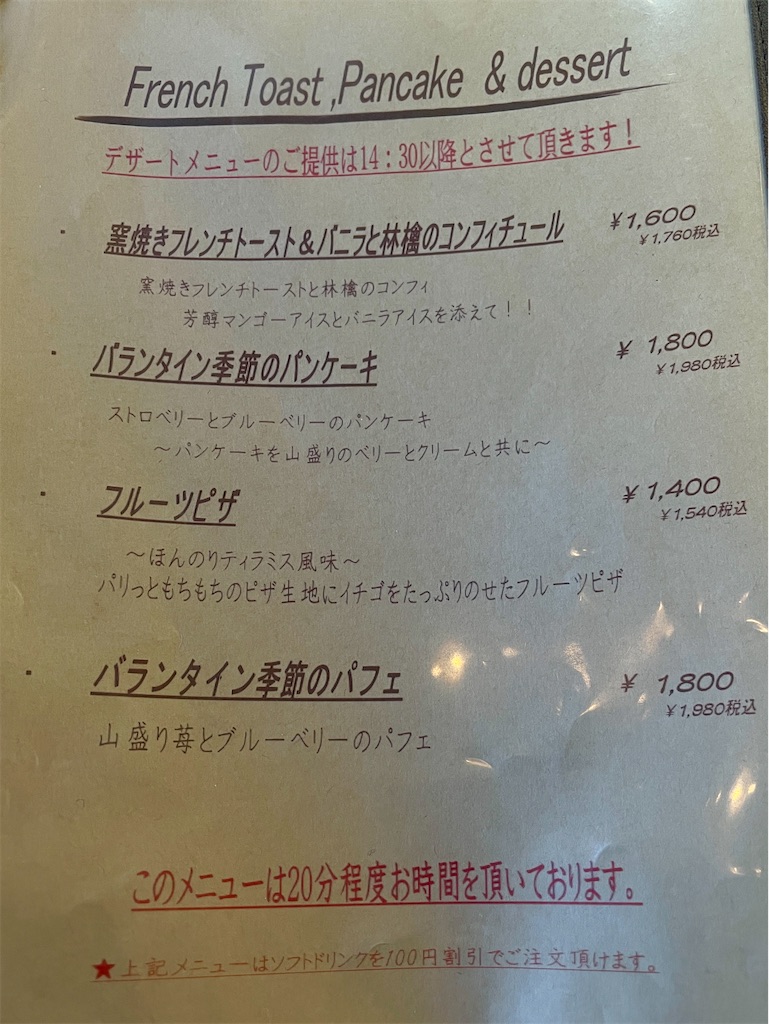 French Toast ,Pancake & dessert
デザートメニューのご提供は14：30以降とさせて頂きます！
・窯焼きフレンチトースト＆バニラと林檎のコンフィチュール ￥1,600
￥1,760税込
窯焼きフレンチトーストと林檎のコンフィ
芳醇マンゴーアイスとバニラアイスを添えて！！
・バランタイン季節のパンケーキ ￥ 1,800
￥1,980税込
ストロベリーとブルーベリーのパンケーキ
～パンケーキを山盛りのベリーとクリームと共に～
・フルーツピザ ￥ 1,400
￥1,540税込
～ほんのりティラミス風味～
パリっともちもちのピザ生地にイチゴをたっぷりのせたフルーツピザ
・バランタイン季節のパフェ ￥ 1,800
￥1,980税込
山盛り苺とブルーベリーのパフェ
このメニューは20分程度お時間を頂いております。
★上記メニューはソフトドリンクを100円割引でご注文頂けます。